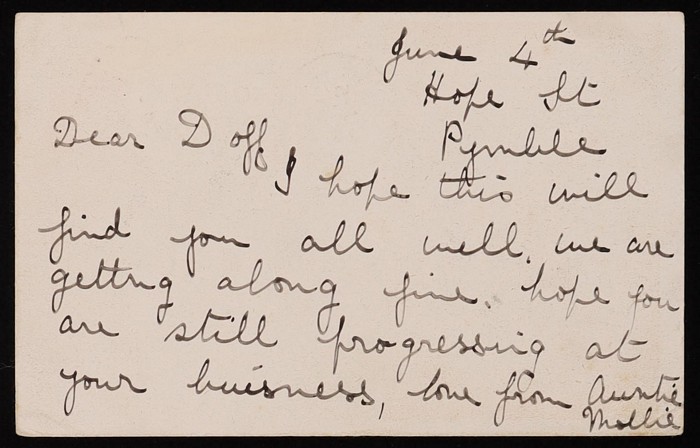 June 4th
Hope St
Pymble
Dear Doff,
I hope this will
find you all well, we are
getting along fine, hope you
are still progressing at
your buisness, love from Auntie
Mollie